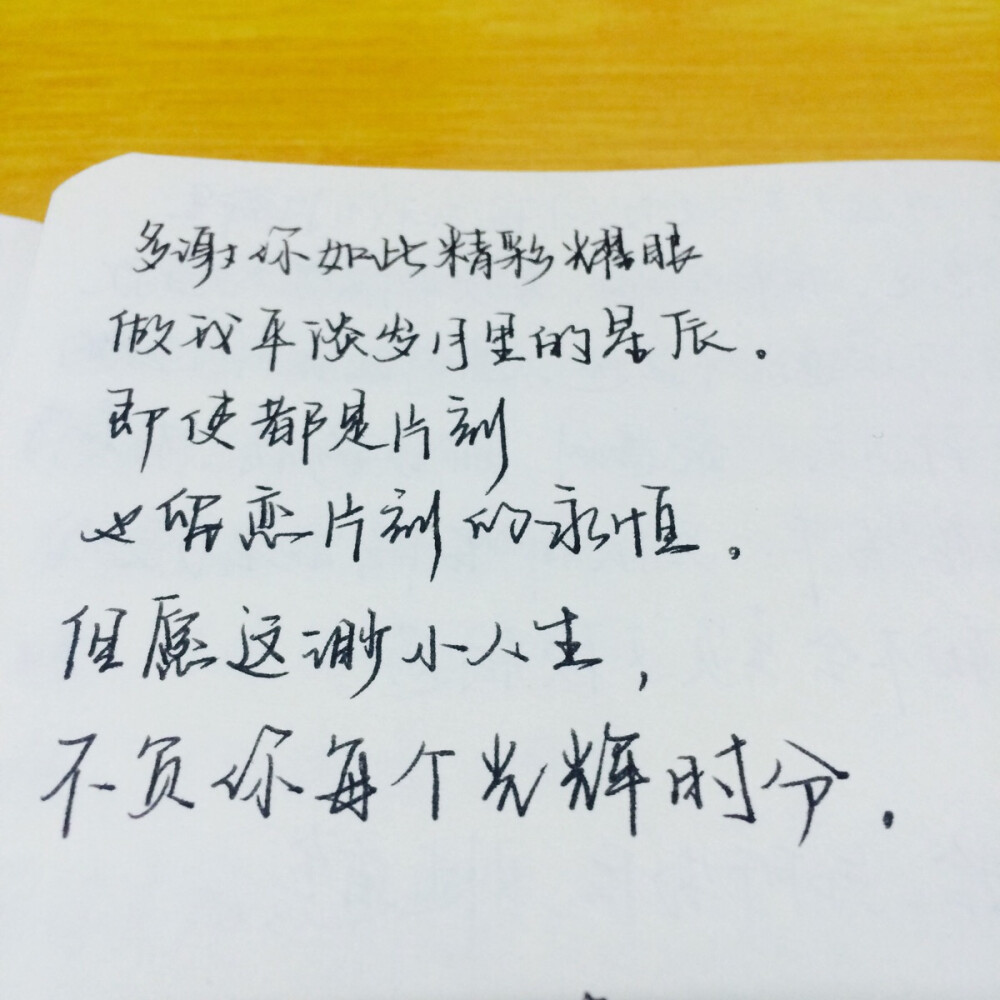 多谢你如此精彩耀眼
做我平淡岁月里的星辰。
即使都是片刻
也留恋片刻的永恒。
但愿这渺小人生,
不负你每个光辉时分.